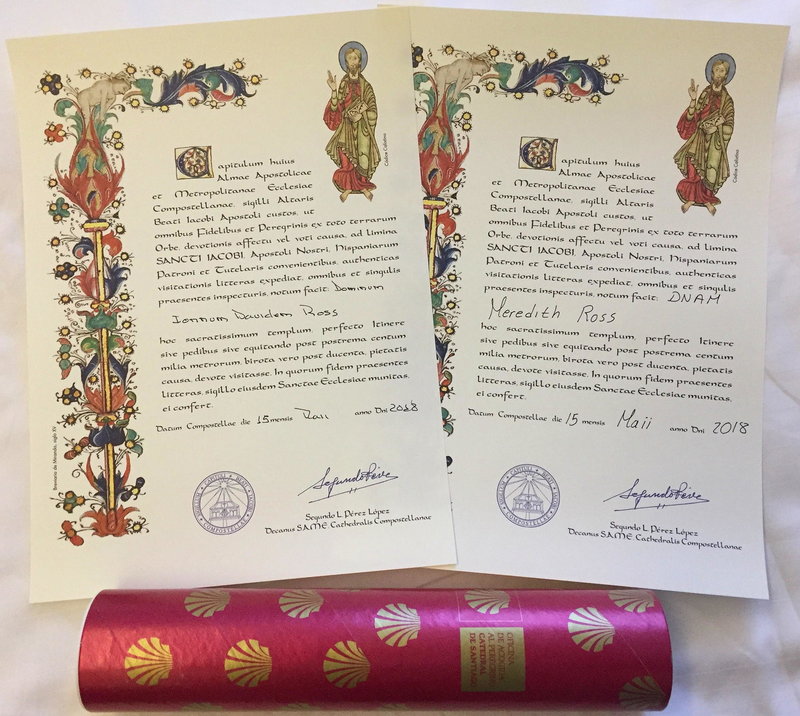 Codice Calixtino
Capitulum huius
Almae Apostolicae
et Metropolitanae Ecclesiae
Compostellanae, sigilli Altaris
Beati Iacobi Apostoli custos, ut
omnibus Fidelibus et Peregrinis ex toto terrarum
Orbe, devotionis affectu vel voti causa, ad limina
SANCTI IACOBI, Apostoli Nostri, Hispaniarum
Patroni et Tutelaris convenientibus, authenticas
visitationis litteras expediat, omnibus et singulis
praesentes inspecturis, notum facit: Dominum
Davidem Ross
hoc sacratissimum templum, perfecto Itinere
sive pedibus sive equitando post postrema centum
milia metrorum, birota vero post ducenta, pietatis
causa, devote visitasse. In quorum fidem praesentes
litteras, sigillo eiusdem Sanctae Ecclesiae munitas,
ei confert.
Datum Compostellae die 15 mensis anno Dni 2018
Segundo L. Pérez López
Decanus S.A.M.E. Cathedralis Compostellanae
Breviario de Miranda, siglo XV
Codice Calixtino
Capitulum huius
Almae Apostolicae
et Metropolitanae Ecclesiae
Compostellanae, sigilli Altaris
Beati Iacobi Apostoli custos, ut
omnibus Fidelibus et Peregrinis ex toto terrarum
Orbe, devotionis affectu vel voti causa, ad limina
SANCTI IACOBI, Apostoli Nostri, Hispaniarum
Patroni et Tutelaris convenientibus, authenticas
visitationis litteras expediat, omnibus et singulis
praesentes inspecturis, notum facit: DNAM
Meredith Ross
hoc sacratissimum templum, perfecto Itinere
sive pedibus sive equitando post postrema centum
milia metrorum, birota vero post ducenta, pietatis
causa, devote visitasse. In quorum fidem praesentes
litteras, sigillo eiusdem Sanctae Ecclesiae munitas,
ei confert.
Datum Compostellae die 15 mensis Maii anno Dni 2018
Segundo L. Pérez López
Decanus S.A.M.E. Cathedralis Compostellanae
OFICINA
DE ACOGIDA
AL PEREGRINO
CATEDRAL
DE SANTIAGO